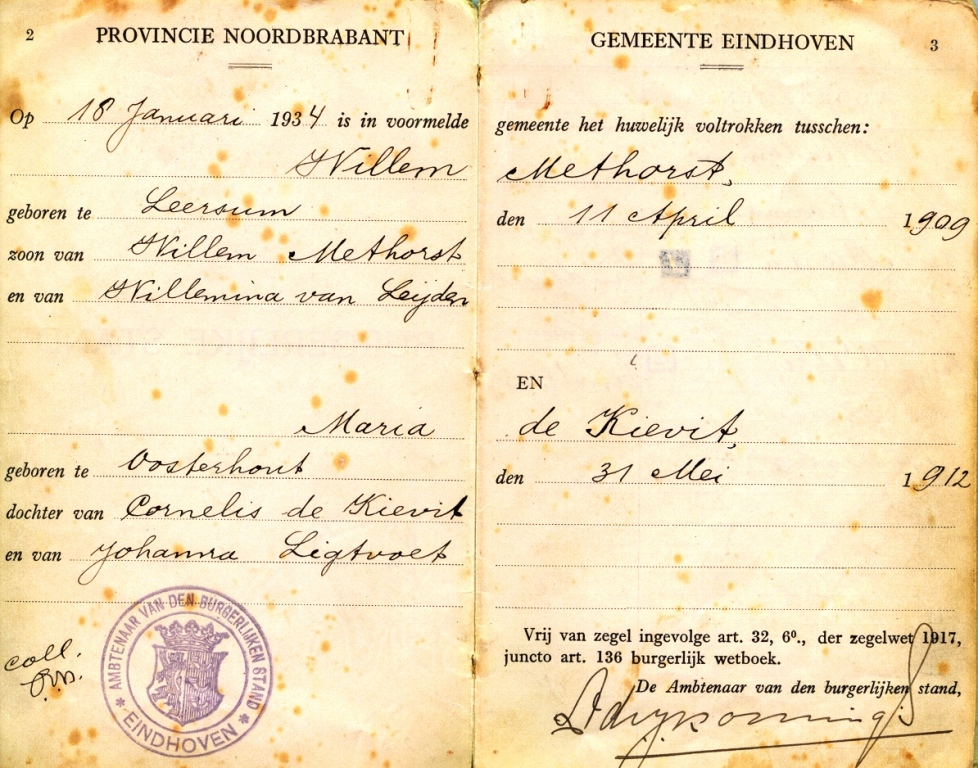 2
PROVINCIE NOORDBRABANT
Op 18 Januari 1934 is in voormelde
Willem
geboren te Leersum
zoon van Willem Methorst
en van Willemina van Leijden
Maria
geboren te Oosterhout
dochter van Cornelis de Kievit
en van Johanna Ligtvoet
coll.
AMBTENAAR VAN DEN BURGERLIJKEN STAND
* EINDHOVEN *
GEMEENTE EINDHOVEN
3
gemeente het huwelijk voltrokken tusschen:
Methorst,
den 11 April 1909
EN
de Kievit,
den 31 Mei 1912
Vrij van zegel ingevolge art. 32, 6⁰., der zegelwet 1917,
juncto art. 136 burgerlijk wetboek.
De Ambtenaar van den burgerlijken stand,